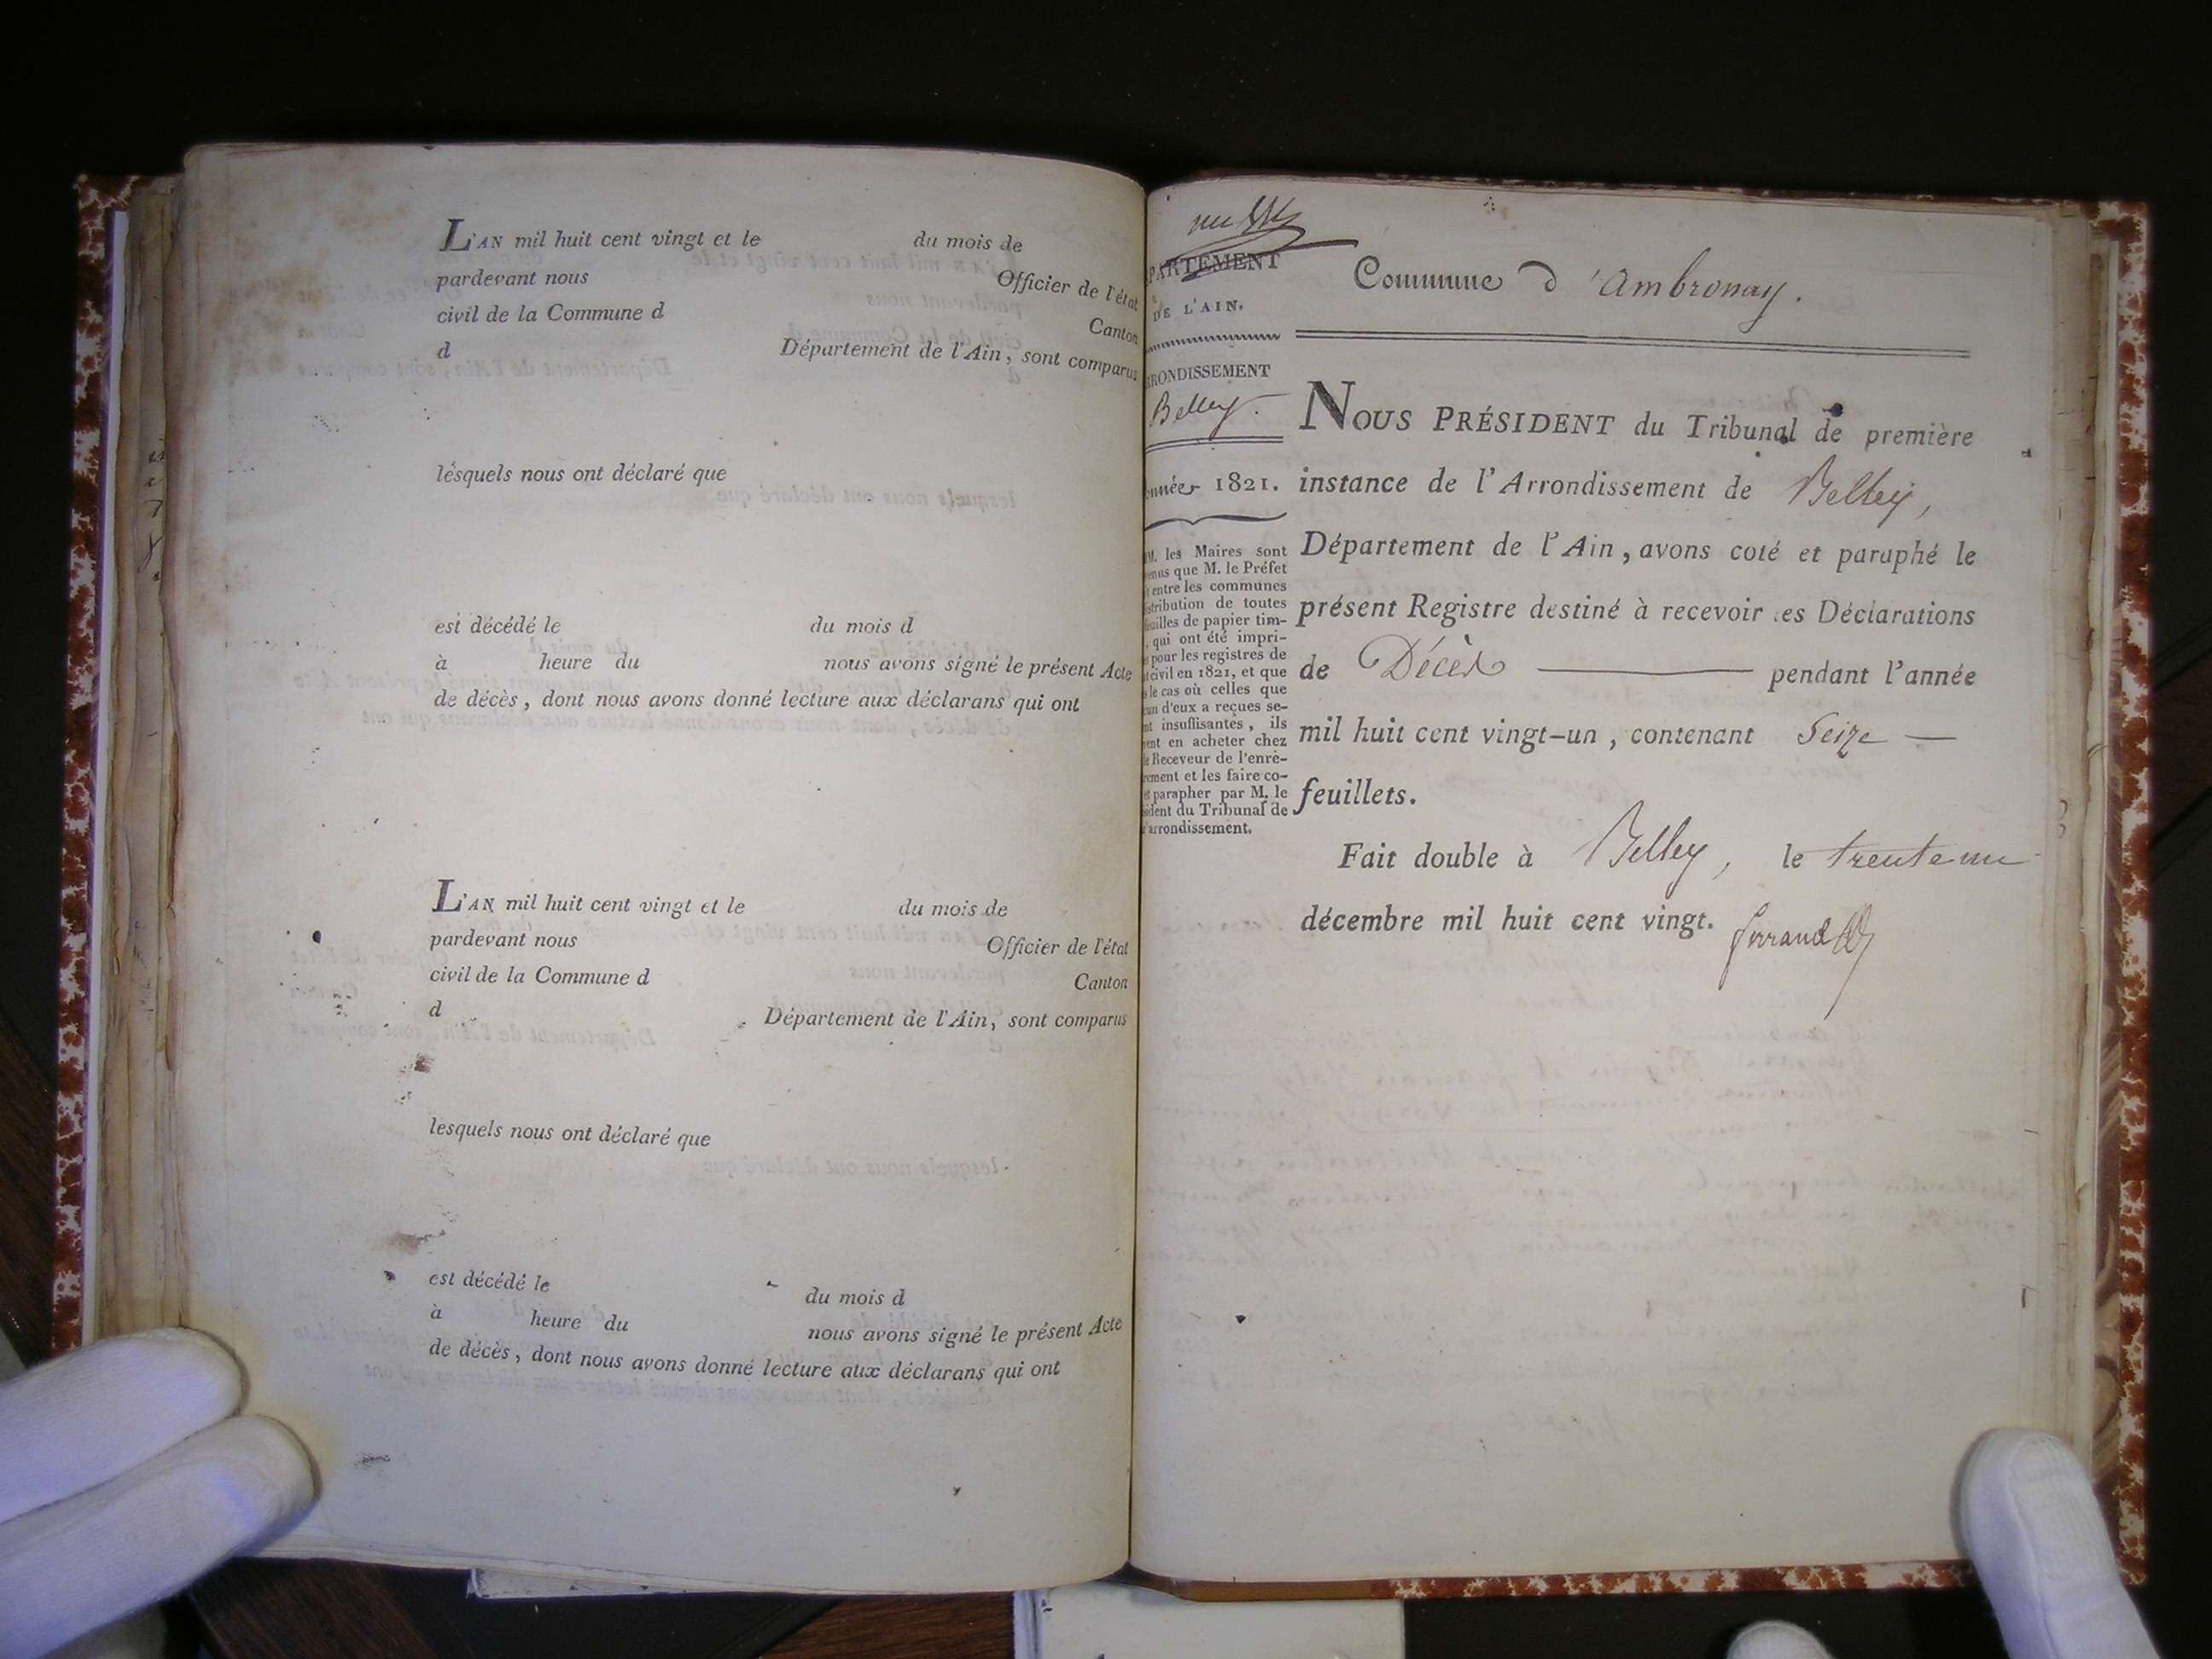 L'AN mil huit cent vingt et le du mois de
pardevant nous Officier de l'état
civil de la Commune d Canton
d Département de l'Ain, sont comparus
lesquels nous ont déclaré que
est décédé le du mois d
à heure du nous avons signé le présent Acte
de décès, dont nous avons donné lecture aux déclarans qui ont
L'AN mil huit cent vingt et le du mois de
pardevant nous Officier de l'état
civil de la Commune d Canton
d Département de l'Ain, sont comparus
lesquels nous ont déclaré que
est décédé le du mois d
à heure du nous avons signé le présent Acte
de décès, dont nous avons donné lecture aux déclarans qui ont
PARTEMENT
DE L'AIN.
RONDISSEMENT
Belley.
nnée 1821.
M. les Maires sont
enus que M. le Préfet
entre les communes
stribution de toutes
euilles de papier tim-
, qui ont été impri-
pour les registres de
civil en 1821, et que
le cas où celles que
un d'eux a reçues se-
nt insuffisantes, ils
ent en acheter chez
e Receveur de l'enre-
rement et les faire co-
et parapher par M. le
sident du Tribunal de
l'arrondissement.
Commune d'Ambronay.
NOUS PRÉSIDENT du Tribunal de première
instance de l'Arrondissement de Belley,
Département de l'Ain, avons coté et paraphé le
présent Registre destiné à recevoir les Déclarations
de Décès pendant l'année
mil huit cent vingt-un, contenant Seize
feuillets.
Fait double à Belley, le trente un
décembre mil huit cent vingt.